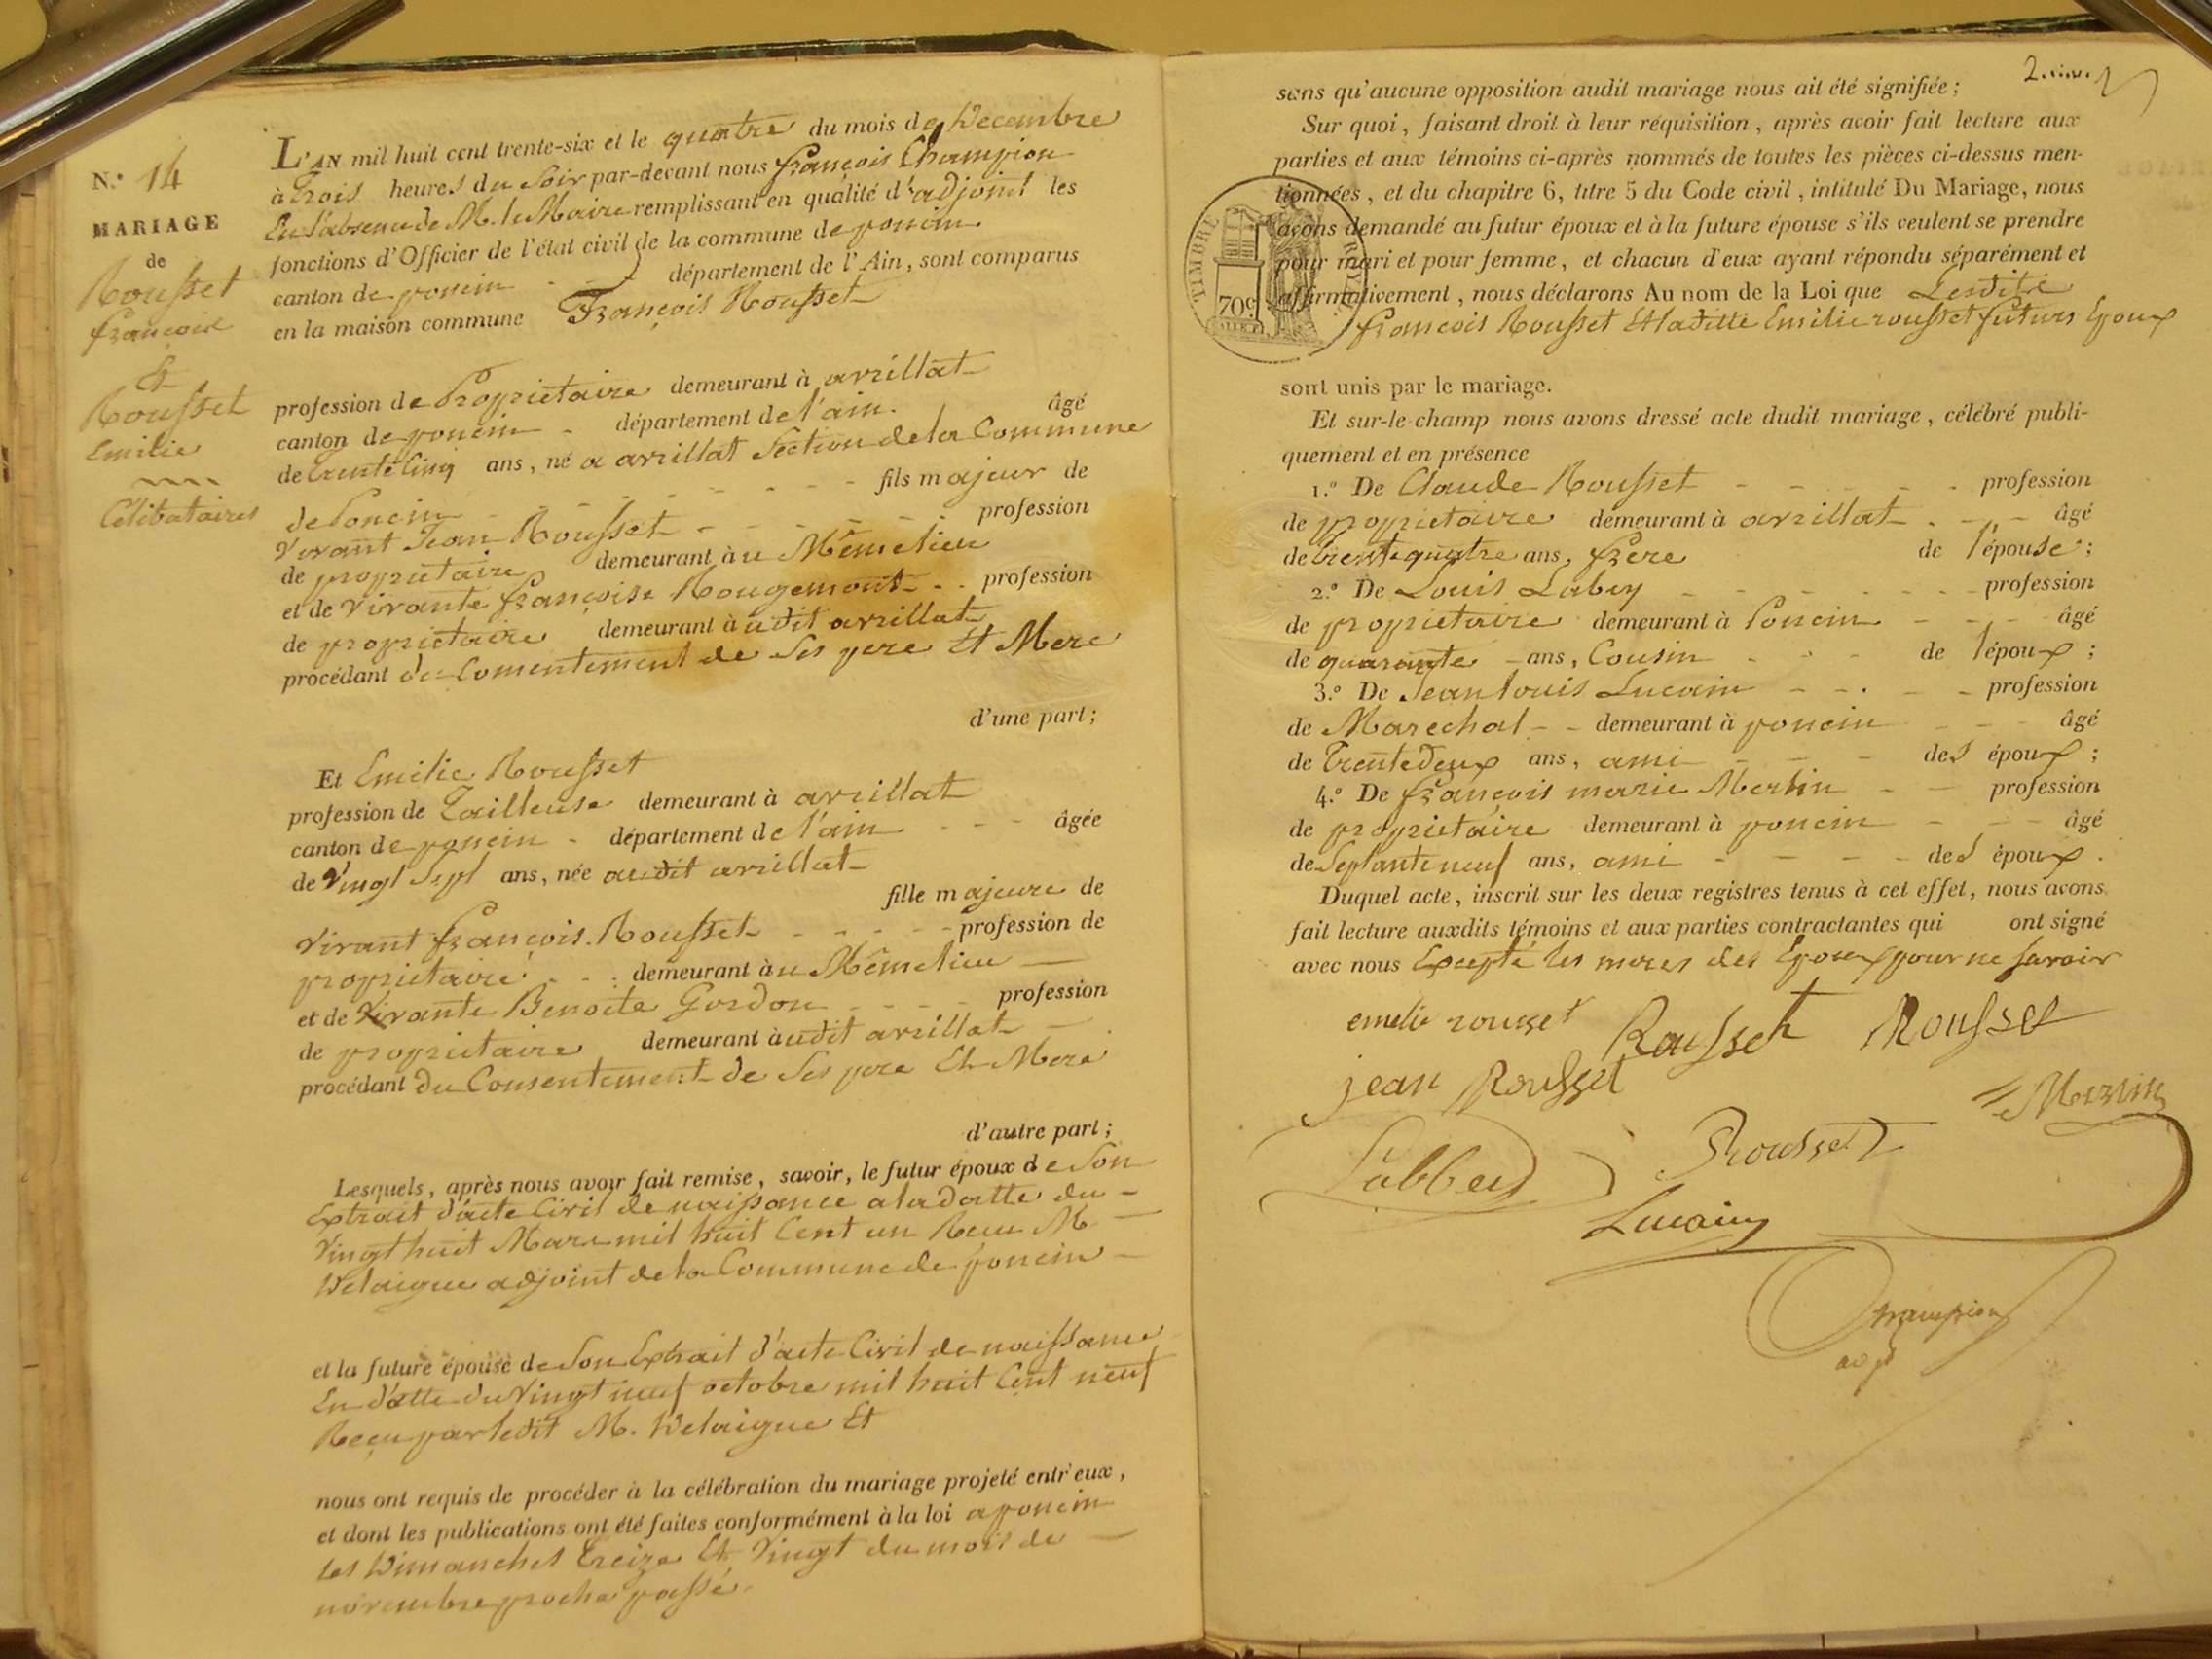 N.º 14
MARIAGE
de
Rousset
françois
Et
Rousset
Emilie
Célibataires
L'AN mil huit cent trente-six et le quatre du mois de Décembre
à trois heures du Soir par-devant nous françois Champion
En l'absence de M. le Maire remplissant en qualité d'adjoint les
fonctions d'Officier de l'état civil de la commune de poncin
canton de poncin département de l'Ain, sont comparus
en la maison commune François Rousset
profession de Proprietaire demeurant à arzillat
canton de poncin - département de l'ain. âgé
de trente Cinq ans, né a arzillat Section de la Commune
de Poncin - - - - - - fils majeur de
vivant Jean Rousset - - - - profession
de proprietaire demeurant à u Même lieu
et de vivante françoise Rougemont - . profession
de proprietaire demeurant à udit arzillat
procédant du Comentement de Ses pere Et Mere
d'une part;
Et Emilie Rousset
profession de Tailleuse demeurant à arzillat
canton de poncin - département de l'ain - - - âgée
de Vingt Sept ans, née audit arzillat
fille majeure de
vivant françois Rousset - - - - - profession de
proprietaire - - : demeurant à u Même lieu —
et de Vivante Benoite Gordon - - - - profession
de proprietaire demeurant à udit arzillat —
procédant du Consentement de Ses pere Et Mere
d'autre part;
Lesquels, après nous avoir fait remise, savoir, le futur époux de Son
Extrait d'acte Civil de naissance a la datte du -
Vingt huit Mars mil huit Cent un Recu M. —
Delaigue adjoint de la Commune de poncin —
et la future épouse de Son Extrait d'acte Civil de naissance
En datte du Vingt neuf octobre mil huit Cent neuf
Reçu par ledit M. Delaigue Et
nous ont requis de procéder à la célébration du mariage projeté entr'eux,
et dont les publications ont été faites conformément à la loi a poncin
les Dimanches Treize Et Vingt du mois de —
novembre proche passé.
sans qu'aucune opposition audit mariage nous ait été signifiée;
Sur quoi, faisant droit à leur réquisition, après avoir fait lecture aux
parties et aux témoins ci-après nommés de toutes les pièces ci-dessus men-
tionnées, et du chapitre 6, titre 5 du Code civil, intitulé Du Mariage, nous
avons demandé au futur époux et à la future épouse s'ils veulent se prendre
pour mari et pour femme, et chacun d'eux ayant répondu séparément et
affirmativement, nous déclarons Au nom de la Loi que Lesdits
françois Rousset Et laditte Emilie rousset futurs Epoux
TIMBRE
70c
sont unis par le mariage.
Et sur-le-champ nous avons dressé acte dudit mariage, célébré publi-
quement et en présence
1.º De Claude Rousset - - - - - profession
de proprietaire demeurant à arzillat . - - âgé
de trente quatre ans, frere de l'épouse;
2.º De Louis Labey - - - - - - profession
de proprietaire demeurant à Poncin - - - âgé
de quarante - ans, Cousin - - - de l'époux;
3.º De Jean louis Lucain - - . - - profession
de Marechal - - demeurant à poncin - - - âgé
de Trente deux ans, ami - - - des époux;
4.º De françois marie Merlin - - profession
de proprietaire demeurant à poncin - - - âgé
de Septante neuf ans, ami - - - - des époux.
Duquel acte, inscrit sur les deux registres tenus à cet effet, nous avons
fait lecture auxdits témoins et aux parties contractantes qui ont signé
avec nous Excepté les meres des Epoux pour ne Savoir
emelie rousset Rousset Rousset
jean Rousset
Merlin
Labbey Rousset
Lucain
Champion
adjt